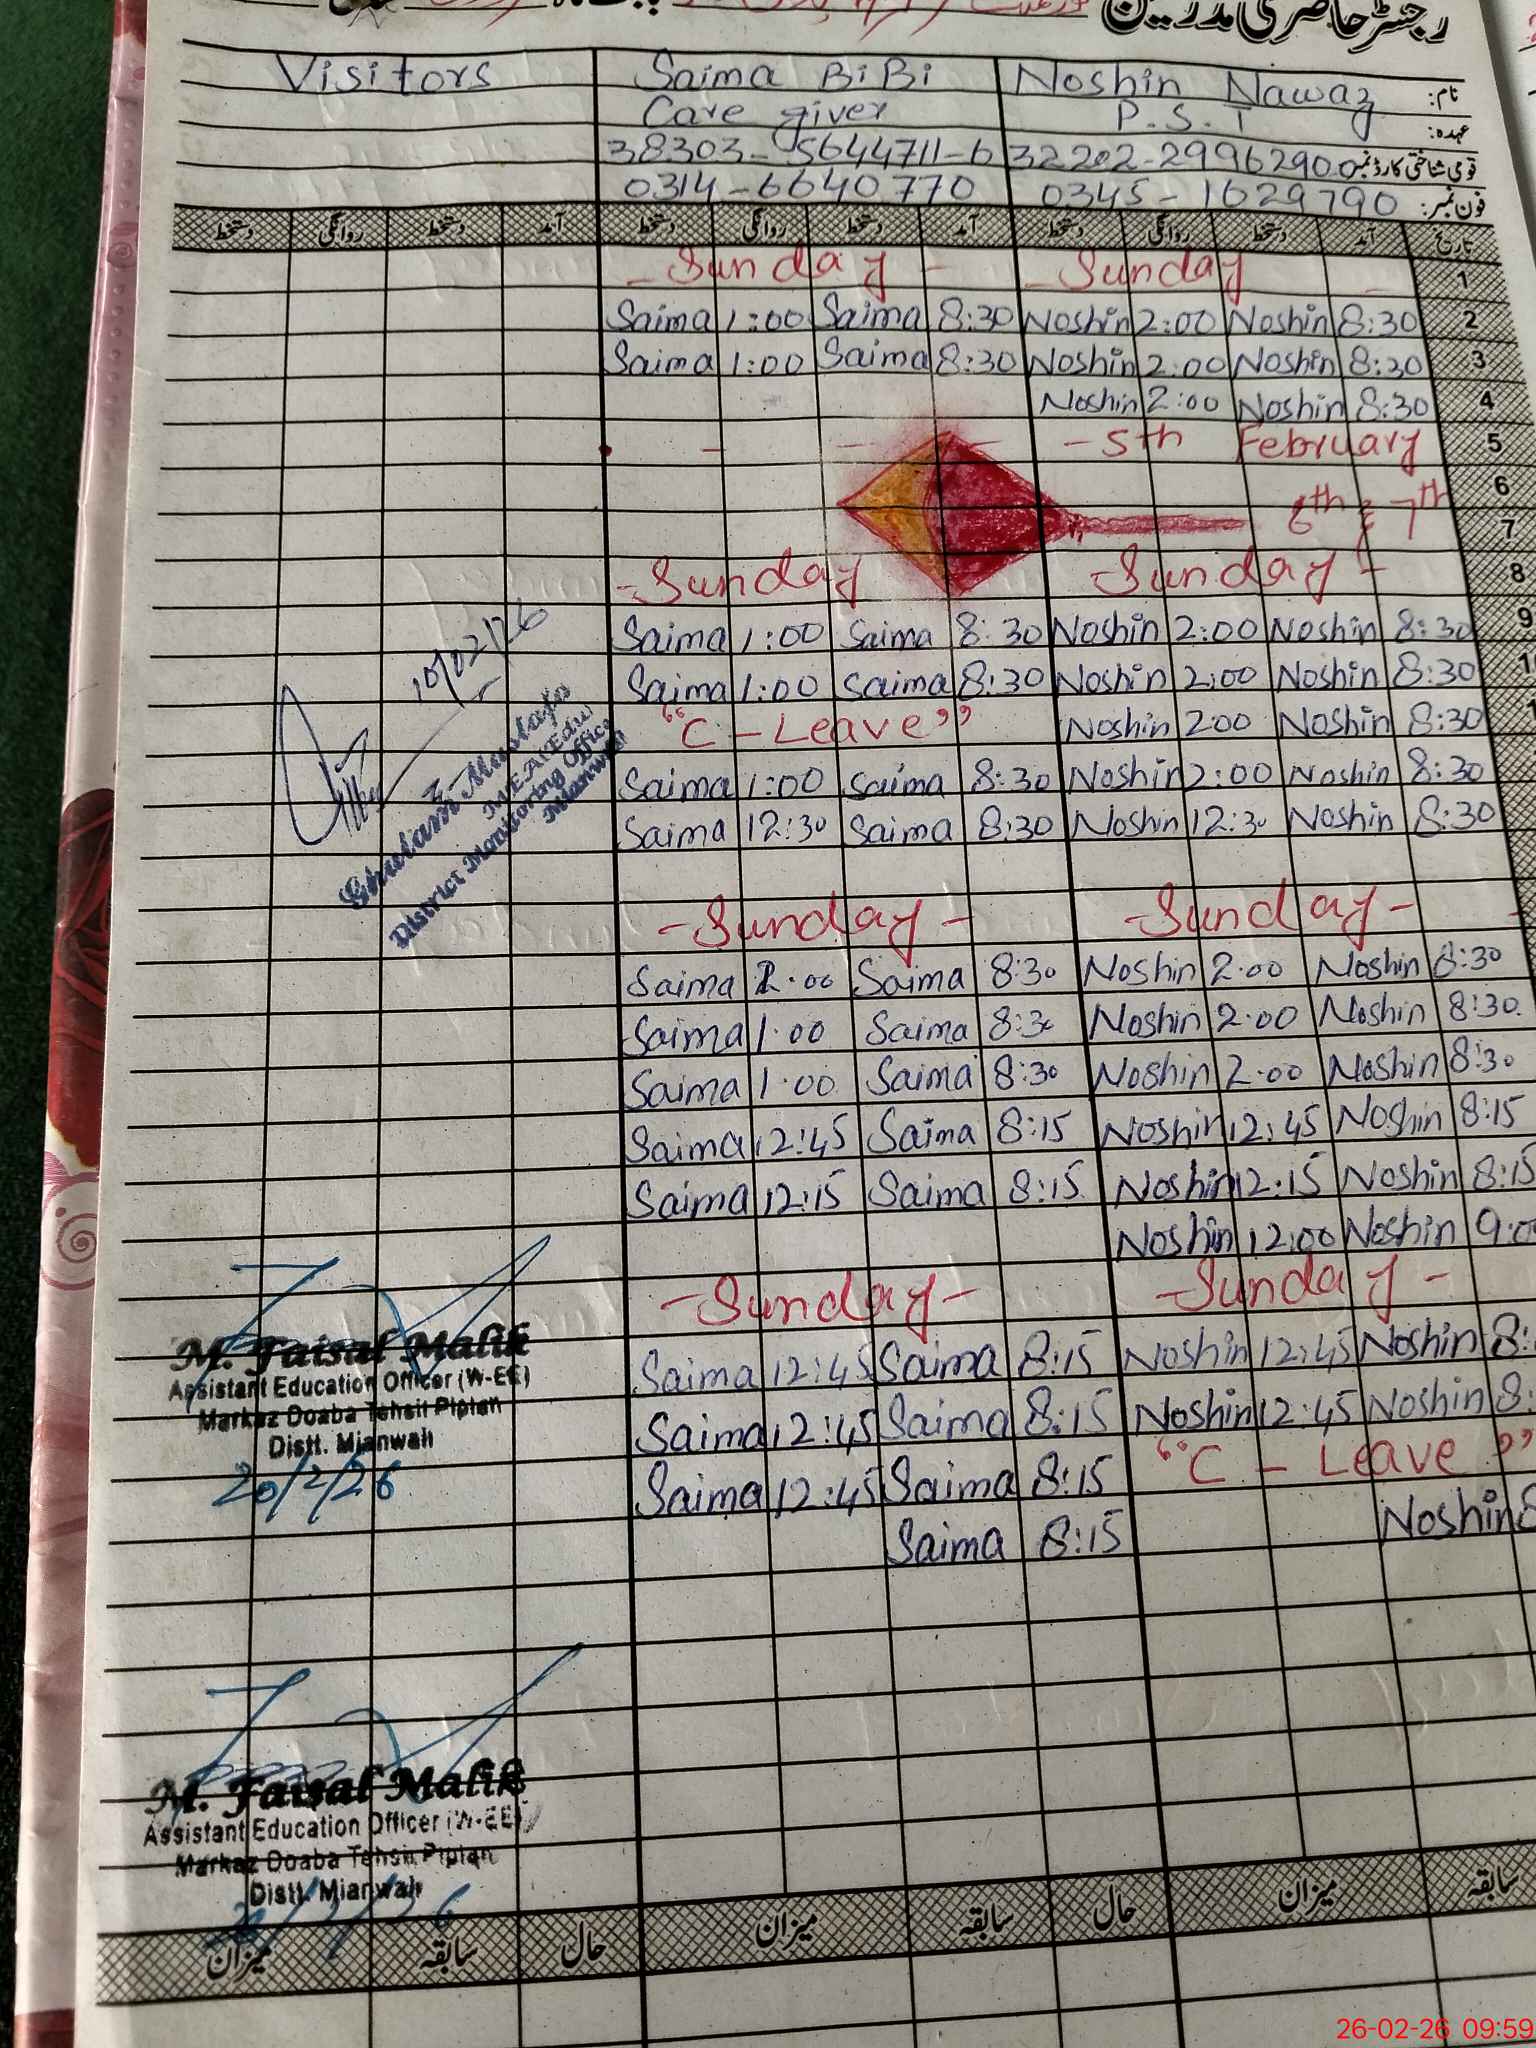 رجسٹر حاضری مدرسین
Visitors Saima BiBi Noshin Nawaz نام:
Care giver P.S.T عہدہ:
38303-5644711-6 32202-2996290-0 قومی شناختی کارڈ نمبر
0314-6640770 0345-1629790 فون نمبر:
دستخط روانگی دستخط آمد دستخط روانگی دستخط آمد دستخط روانگی دستخط آمد تاریخ
- Sunday - - Sunday - 1
Saima 1:00 Saima 8:30 Noshin 2:00 Noshin 8:30 2
Saima 1:00 Saima 8:30 Noshin 2:00 Noshin 8:30 3
Noshin 2:00 Noshin 8:30 4
- 5th February 5
6
6th & 7th 7
- Sunday - Sunday - 8
Saima 1:00 Saima 8:30 Noshin 2:00 Noshin 8:30 9
Saima 1:00 Saima 8:30 Noshin 2:00 Noshin 8:30
"C - Leave" Noshin 200 Noshin 8:30
Saima 1:00 Saima 8:30 Noshin 2:00 Noshin 8:30
Saima 12:30 Saima 8:30 Noshin 12:30 Noshin 8:30
10/02/26
Ghulam Mustafa
MEA (Edu)
District Monitoring Office
Mianwali
- Sunday - - Sunday -
Saima 1.00 Saima 8:30 Noshin 2.00 Noshin 8:30
Saima 1.00 Saima 8:30 Noshin 2.00 Noshin 8:30
Saima 1.00 Saima 8:30 Noshin 2.00 Noshin 8:30
Saima 12:45 Saima 8:15 Noshin 12:45 Noshin 8:15
Saima 12:15 Saima 8:15 Noshin 12:15 Noshin 8:15
Noshin 12:00 Noshin 9:0
- Sunday - - Sunday -
Saima 12:45 Saima 8:15 Noshin 12:45 Noshin 8:
Saima 12:45 Saima 8:15 Noshin 12:45 Noshin 8:
Saima 12:45 Saima 8:15 "C - Leave"
Saima 8:15 Noshin 8
M. Faisal Malik
Assistant Education Officer (W-EE)
Markaz Doaba Tehsil Piplan
Distt. Mianwali
20/2/26
M. Faisal Malik
Assistant Education Officer (W-EE)
Markaz Doaba Tehsil Piplan
Distt. Mianwali
میزان سابقہ حال میزان سابقہ حال میزان سابقہ
26-02-26 09:59